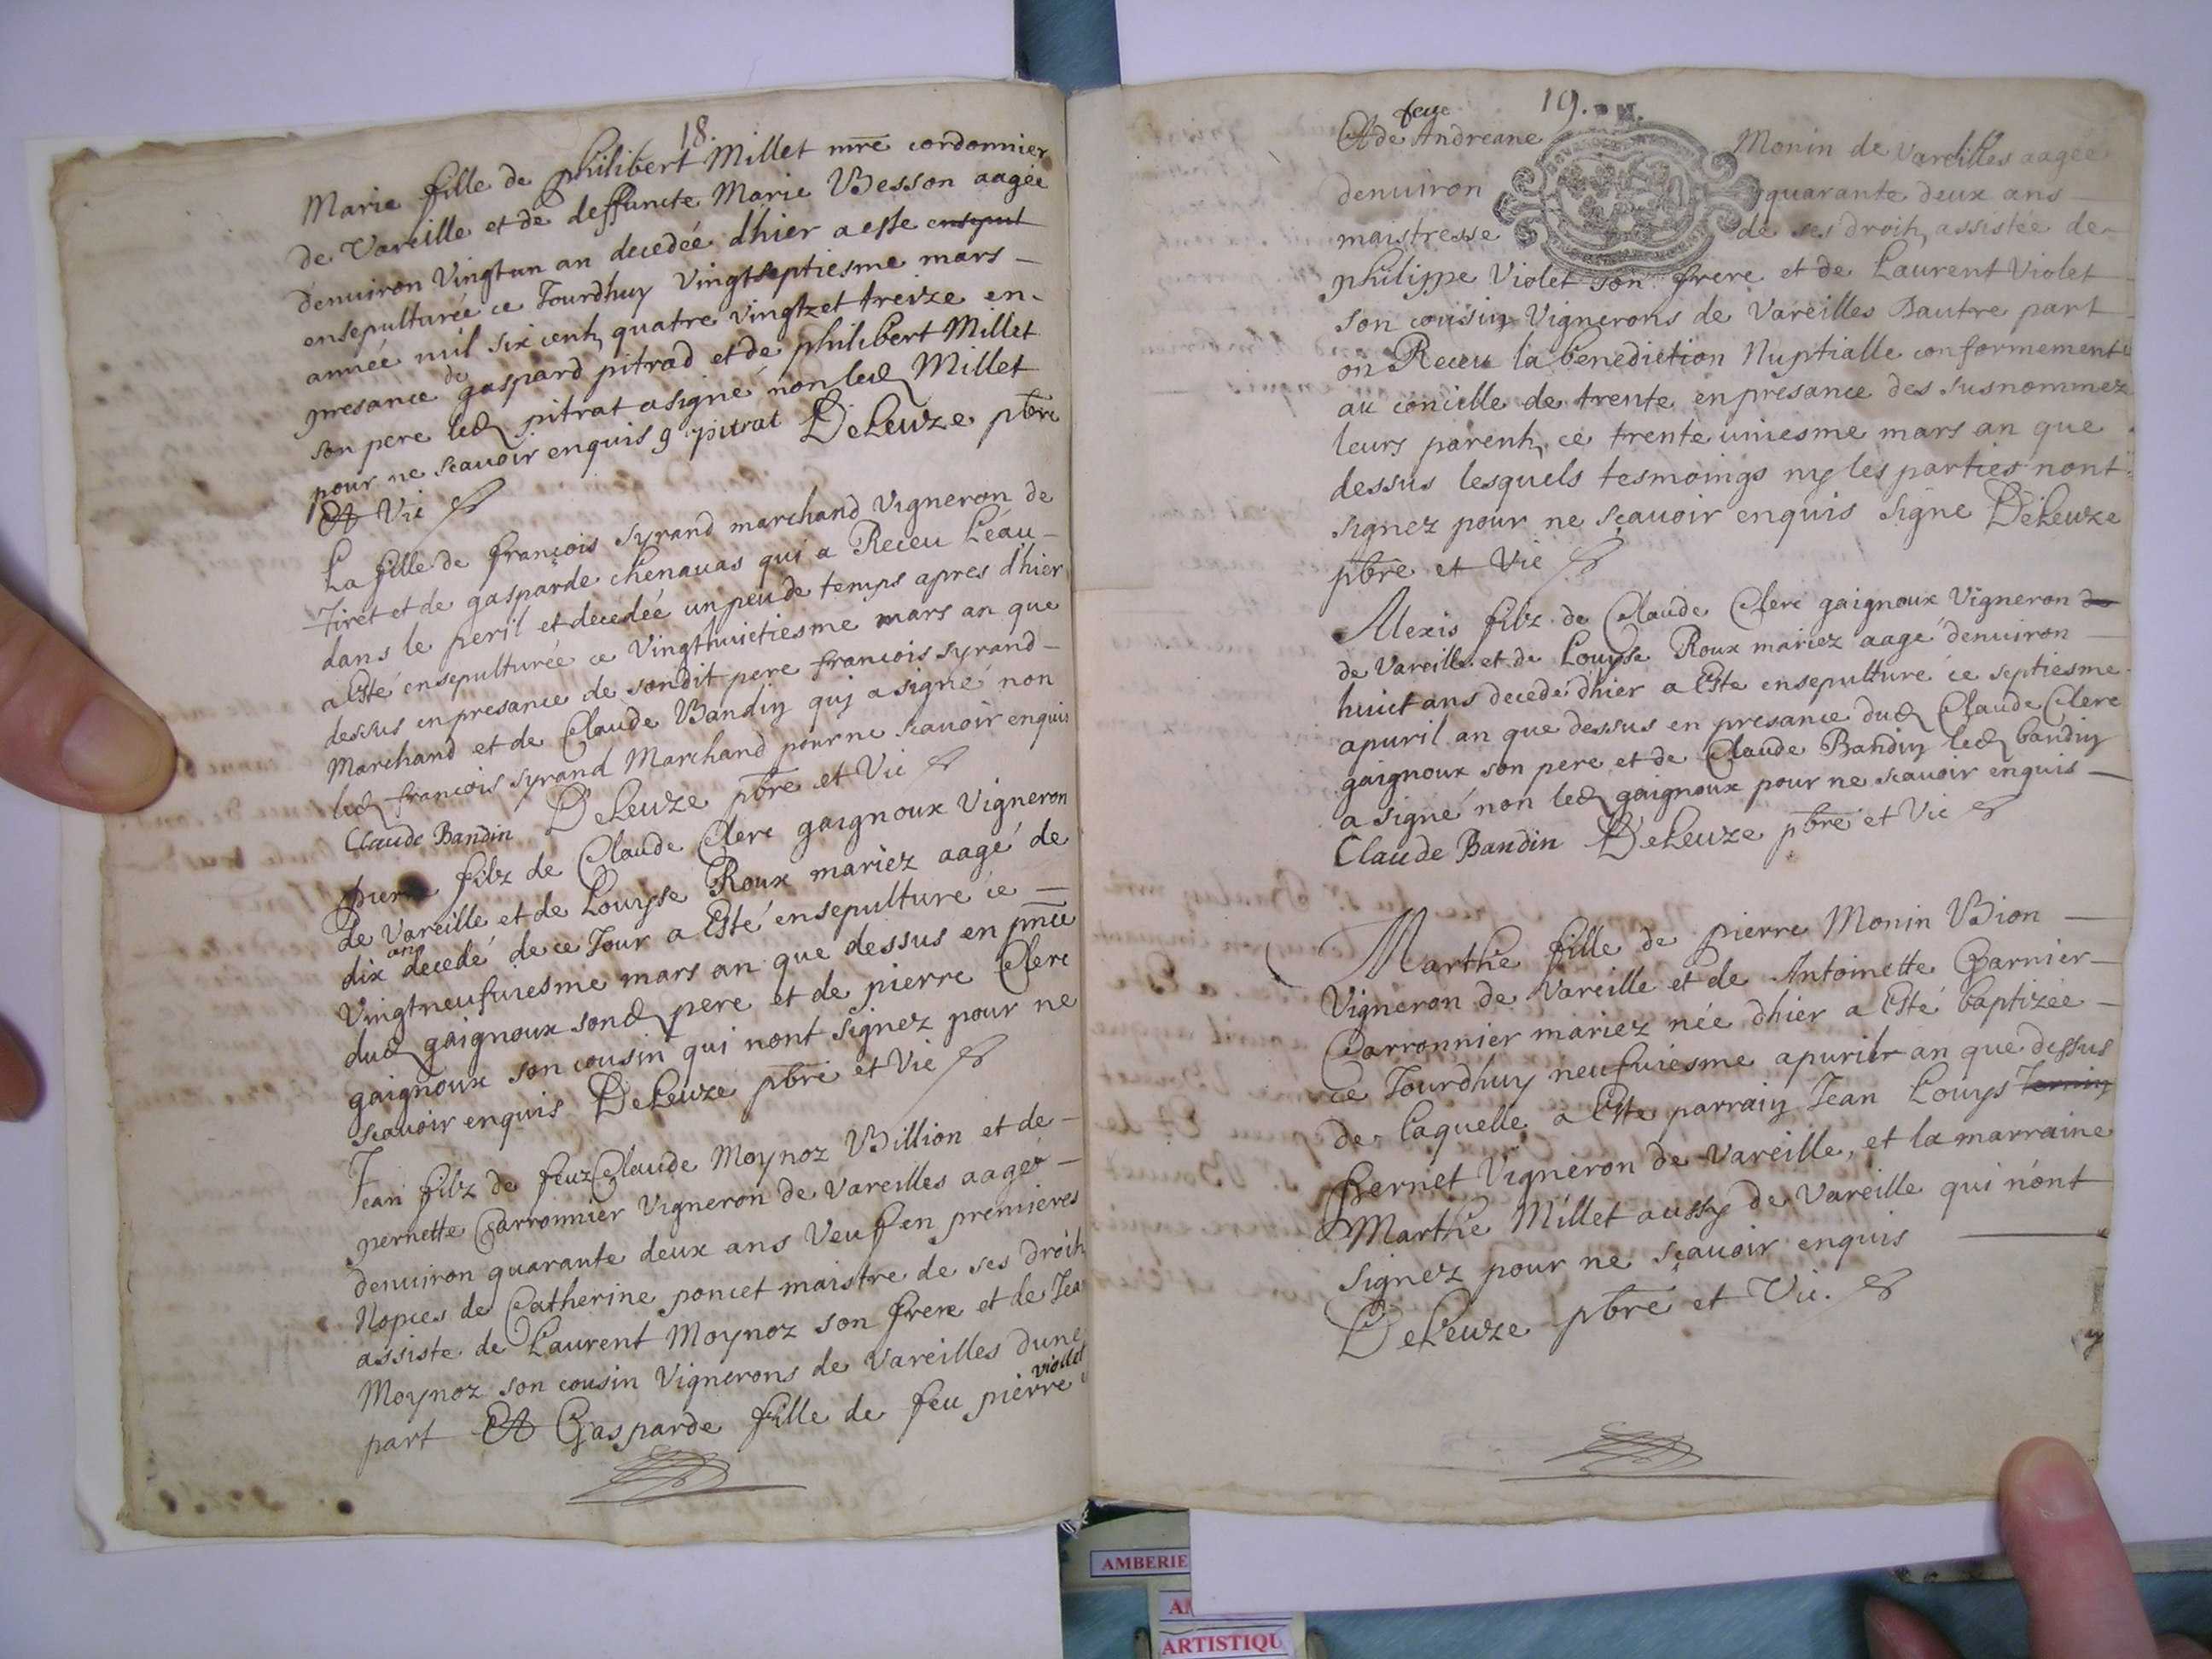 18.
Marie fille de philibert Millet mre cordonnier
de Vareille et de deffuncte Marie Besson aagée
denuiron Vingtun an decedée dhier a este ensepul
ensepulturée ce Jourdhuy Vingtseptiesme mars
année mil six cents quatre vingtzet treize en
presance de gaspard pitrad et de philibert Millet
son pere led pitrat a signé non led Millet
pour ne scauoir enquis g pitrat DeLeuze pbre
Et Vic
La fille de françois Syrand marchand Vigneron de
Tiret et de gasparde Chenauas qui a Receu Leau
dans le peril et decedée un peu de temps apres dhier
a Esté ensepulturée ce Vingthuictiesme mars an que
dessus en presance de sondit pere francois syrand
Marchand et de Claude Bandin qui a signé non
led francois syrand Marchand pour ne scauoir enquis
Claude Bandin DeLeuze pbre et Vic
pierre filz de Claude Clerc gaignoux Vigneron
de Vareille et de Louyse Roux mariez aagé de
dix ans decedé de ce Jour a Esté ensepulturé ce
Vingtneufuiesme mars an que dessus en pnce
dud gaignoux sond pere et de pierre Clerc
gaignoux son cousin qui nont signez pour ne
scauoir enquis DeLeuze pbre et Vic
Jean filz de feuz Claude Moynoz Billion et de
pernette Carronnier Vigneron de Vareilles aagez
denuiron quarante deux ans Veuf en premieres
Nopces de Catherine poncet maistre de ses droits
assiste de Laurent Moynoz son frere et de Jea
Moynoz son cousin Vignerons de Vareilles dune
part Et Gasparde fille de feu pierre viollet
19.
Et de feue Andreane Monin de Vareilles aagée
denuiron quarante deux ans
maistresse de ses droits assistée de
philippe Violet son frere et de Laurent Violet
son cousin Vignerons de Vareilles Dautre part
on Receu la benediction Nuptialle conformement
au concille de trente en presance des susnommez
leurs parents ce trente uniesme mars an que
dessus lesquels tesmoings ny les parties nont
signez pour ne sçauoir enquis Signe DeLeuze
pbre et Vic
Alexis filz de Claude Clerc gaignoux Vigneron de
de Vareille et de Louyse Roux mariez aagé denuiron
huict ans decedé dhier a Este ensepulturé ce septiesme
apuril an que dessus en presance dud Claude Clerc
gaignoux son pere et de Claude Bandin led bandin
a signé non led gaignoux pour ne scauoir enquis
Claude Bandin DeLeuze pbre et Vic
Marthe fille de pierre Monin Bion
Vigneron de Vareille et de Antoinette Garnier
Carronnier mariez née dhier a Esté baptizée
ce Jourdhuy neufuiesme apuril an que dessus
de laquelle a Este parrain Jean Louys
Bernet Vigneron de Vareille, et la marraine
Marthe Millet aussy de Vareille qui nont
signez pour ne sçauoir enquis
DeLeuze pbre et Vic.
AMBERIE
ARTISTIQU